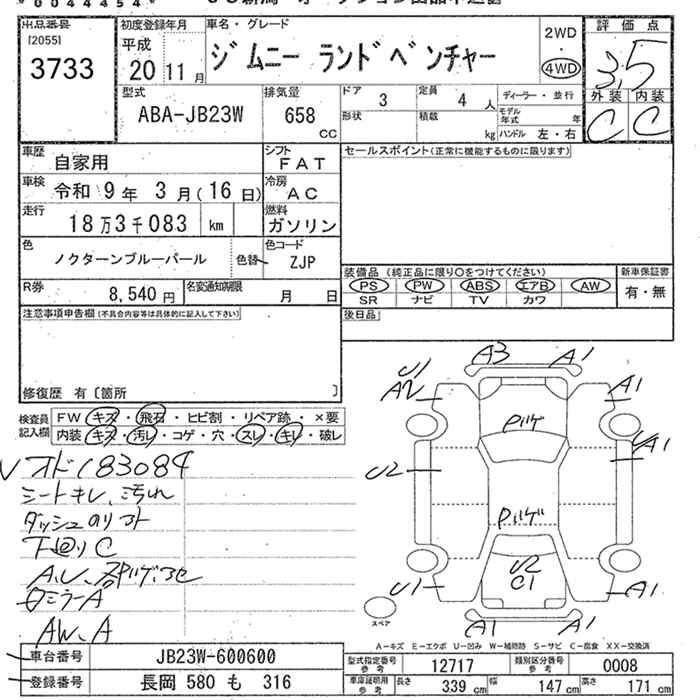 *0044454*
出品番号
[2055]
3733
初度登録年月
平成
20 11月
車名・グレード
ジムニー ランドベンチャー
2WD
・
4WD
評価点
3.5
外装 内装
C C
型式
ABA-JB23W
排気量
658
cc
ドア
3
定員
4人
形状
積載
kg
ディーラー・並行
モデル年式 年
ハンドル 左・右
車歴
自家用
シフト
FAT
車検 令和 9年 3月(16日)
冷房
AC
走行
18万3千083 km
燃料
ガソリン
色
ノクターンブルーパール
色替
色コード
ZJP
R券
8,540円
名変通知期限
月 日
セールスポイント(正常に機能するものに限ります)
装備品(純正品に限り○をつけてください)
PS PW ABS エアB AW
SR ナビ TV カワ
新車保証書
有・無
後日品
注意事項申告欄(不具合内容等は具体的に記入して下さい)
修復歴 有〔箇所 〕
検査員記入欄
FW キズ・飛石・ヒビ割・リペア跡・×要
内装 キズ・汚レ・コゲ・穴・スレ・キレ・破レ
オド183084
シートキレ、汚れ
ダッシュのリフト
下廻りC
AW、A
A3 A1
U1
A2
A1
Pハゲ
U2
A1
Pハゲ
U2
C1
U1
A1
A1 A1
スペア
A-キズ E-エクボ U-凹み W-補修跡 S-サビ C-腐食 XX-交換済
車台番号
JB23W-600600
登録番号
長岡 580 も 316
型式指定番号
参考
12717
類別区分番号
参考
0008
車庫証明用
参考
長さ
339 cm
幅
147 cm
高さ
171 cm